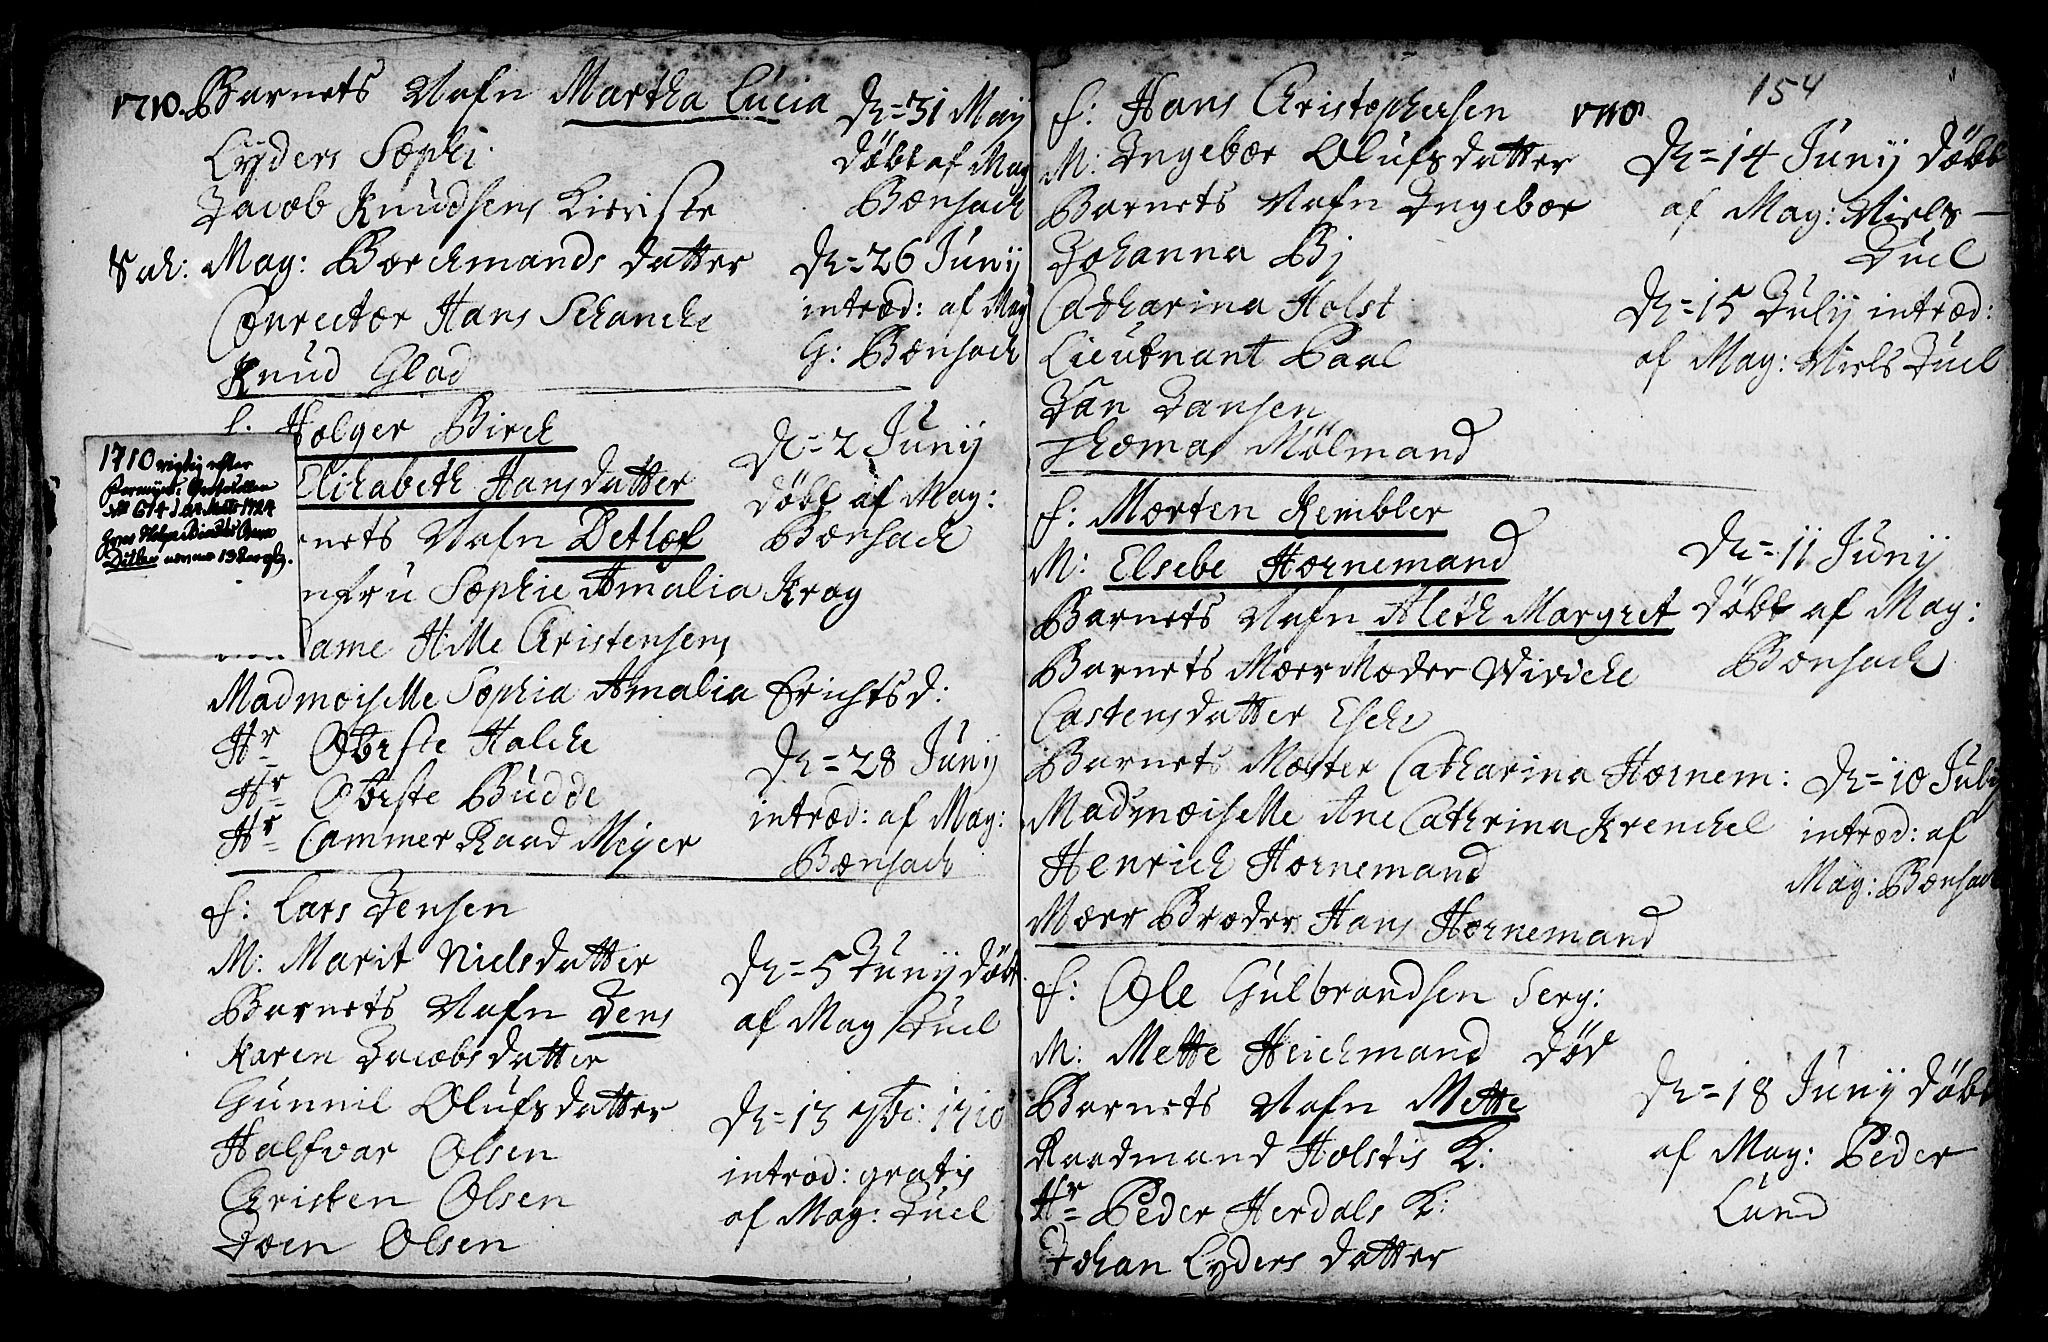 1710. Barnets Nafn Martha Lucia
Lyders Sophi
Jacob Knudsens Kirriste
Sal: Mag: Borchmands datter
Conrector Hans Schancke
Knud Glad
Dn = 31 Maij
döbt af Mag
Bonsach
Dn = 26 Junij
introd: af Mag
G: Bonsach
f. Holger Birch
Elisabeth Hansdatter
nets Nafn Detlof
nfru Sophie Amalia Krag
ame Hille Christensens
Madmoiselle Sophia Amalia Erichsd:
Hr Obriste Halcke
Hr Obriste Budde
Hr Cammer Raad Meyer
1710 rigtig efter
No 674
Ditlev
Dn = 2 Junij
döbt af Mag:
Bonsach
Dn = 28 Junij
introd: af Mag:
Bonsach
f: Lars Jensen
M: Marit Nielsdatter
Barnets Nafn Jens
Karen Jacobsdatter
Gunnil Olufsdatter
Halfvar Olsen
Christen Olsen
Joen Olsen
Dn = 5 Junij döbt
af Mag Juel
Dn = 13 7br: 1710
introd: gratis
af Mag: Juel
154
f: Hans Christophersen 1710
M: Ingebor Olufsdatter
Barnets Nafn Ingebor
Johanna Bj
Catharina Holst
Lieutnant Paal
Jan Jansen
Thomas Mölmand
Dn = 14 Junij döbt
af Mag: Niels
Juel
Dn = 15 Julij introd:
af Mag: Niels Juel
f: Morten Kembler
M: Elsebe Hornemand
Barnets Nafn Aleth Margret
Barnets Moer Moder Wivicke
Castensdatter Esche
Barnets Moster Catharina Hornem:
Madmoiselle Ane Cathrina Krenckel
Henrich Hornemand
Moer Broder Hans Hornemand
Dn = 11 Junij
döbt af Mag:
Bonsach
Dn = 10 Julij
introd: af
Mag: Bonsach
f: Ole Gulbrandsen Serg:
M: Mette Heichmand död
Barnets Nafn Mette
Raadmand Holstis K:
Hr Peder Herdals K:
Johan Lyders datter
Dn = 18 Junij döbt
af Mag: Peder
Lund